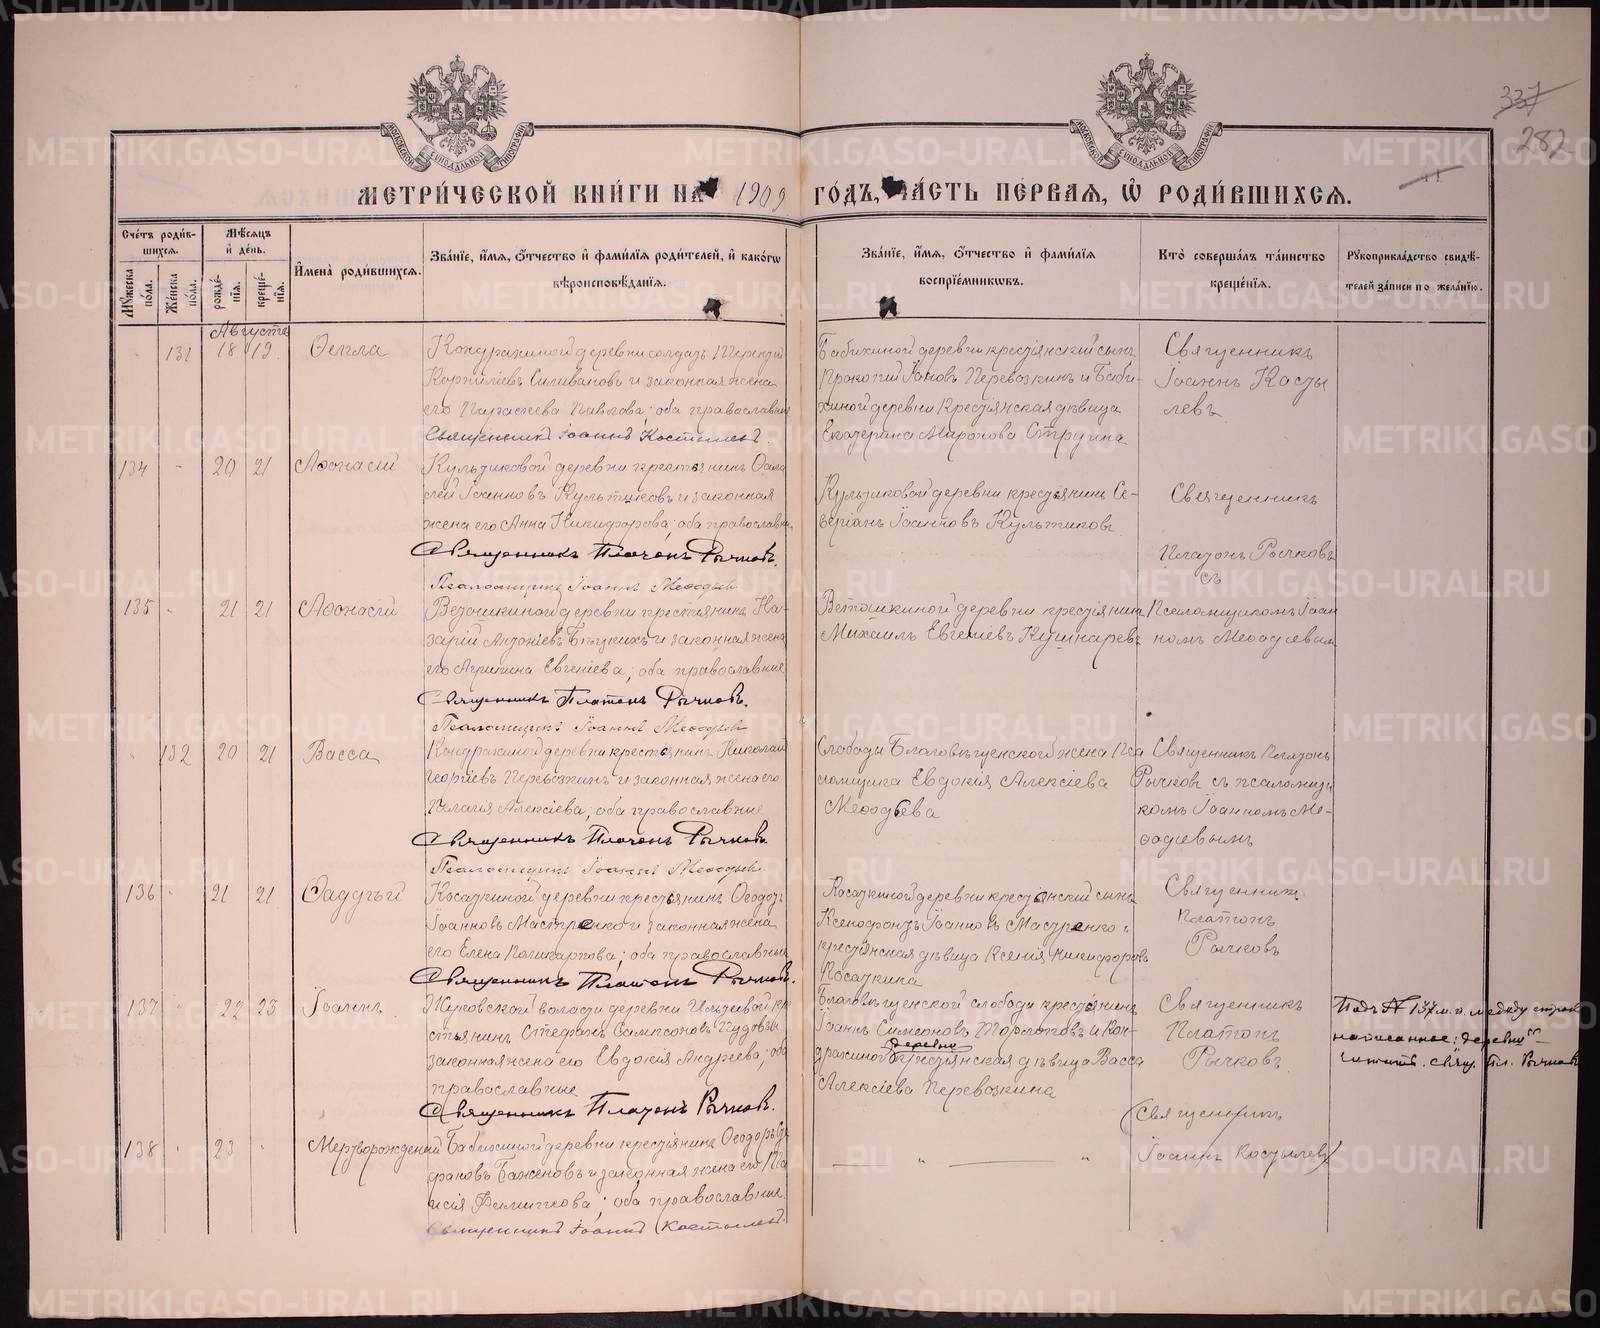 337
282
МЕТРИ́ЧЕСКОЙ КНИ́ГИ НА 1909 ГО́ДЪ, ЧА́СТЬ ПЕ́РВАЯ, Ѡ РОДИ́ВШИХСЯ.
Сче́тъ роди́в-
шихся.
Мѹ́жеска по́ла.
Же́нска по́ла.
Мѣ́сяцъ и҆ де́нь.
рожде́-
нїя.
креще́-
нїя.
И҆мена̀ роди́вшихся.
Зва́нїе, и҆́мя, ѻ҆́тчество и҆ фами́лїя роди́телей, и҆ како́гѡ
вѣроисповѣ́данїя.
Зва́нїе, и҆́мя, ѻ҆́тчество и҆ фами́лїя
воспрїе́мникѡвъ.
Кто̀ соверша́лъ та́инство
креще́нїя.
Рѹкоприкла́дство свидѣ́-
телей за́писи по жела́нїю.
Августъ
131 18 19 Ѳекла
Кондрахиной деревни солдатъ Терентій
Корнилiевъ Силивановъ и законная жена
его Параскева Павлова; оба православные
Священникъ Іоаннъ Костылевъ.
Бабихиной деревни крестьянскій сынъ
Прокопій Іаковъ Перевозкинъ и Баби-
хиной деревни Крестьянская дѣвица
Екатерина Миронова Стругина
Священникъ
Іоаннъ Косты
левъ
134 - 20 21 Аѳонасій
Култиковой деревни крестьянинъ
Іоанновъ Култыковъ и законная
жена его Анна Никифорова; оба православны
Священникъ Платонъ Рычковъ.
Псаломщикъ Іоаннъ Меѳодьевъ
Култиковой деревни крестьянинъ Се-
верiанъ Іоанновъ Култиковъ
Священникъ
Платонъ Рычковъ
съ
135 - 21 21 Аѳонасій
Ветошкиной деревни крестьянинъ На-
зарій Антонiевъ и законная жена
его Агрипина Евгенiева; оба православные
Священникъ Платонъ Рычковъ.
Псаломщикъ Іоаннъ Меѳодьевъ
Ветошкиной деревни крестьянинъ
Михаилъ Евгенiевъ Кушнаревъ
Псаломщикомъ Іоан
номъ Меѳодiевымъ
132 20 21 Васса
Кондрахиной деревни крестьянинъ Николай
Георгiевъ Перевозкинъ и законная жена его
Пелагiя Алексiева; оба православные
Священникъ Платонъ Рычковъ.
Псаломщикъ Іоаннъ Меѳодьевъ
Слободы Благовѣщенской жена Пса
ломщика Евдокiя Алексiева
Меѳодьева
Священникъ Платонъ
Рычковъ съ псаломщи
комъ Іоанномъ Ме-
ѳодiевымъ
136 - 21 21 Ѳаддей
Косаткиной деревни крестьянинъ Ѳеодотъ
Іоанновъ Мастренко и законная жена
его Елена Поликарпова; оба православные
Священникъ Платонъ Рычковъ.
Косаткиной деревни крестьянскій сынъ
Ксенофонтъ Іоанновъ Мастренко и
крестьянская дѣвица Ксенiя Никифорова
Косаткина
Священникъ
Платонъ
Рычковъ
137 - 22 23 Іоаннъ
Жуковской волости деревни кре
стьянинъ Стефанъ Сампсоновъ
законная жена его Евдокiя Андреева; оба
православные
Священникъ Платонъ Рычковъ.
Благовѣщенской слободы крестьянинъ
Іоаннъ Симеоновъ Тормотовъ и Кон-
деревни
драхиной крестьянская дѣвица Васса
Алексiева Перевозкина
Священникъ
Платонъ
Рычковъ
Подъ № 137 м. п. между строк
написанное: „деревни“
читать. свящ. Пл. Рычковъ
138 - 23 - Мертворожденный
Бабихиной деревни крестьянинъ Ѳеодоръ
Баженовъ и законная жена его
Филиппова; оба православные.
Священникъ Іоаннъ Костылевъ.
— „ — „
(Священникъ
Іоаннъ Костылевъ)
METRIKI.GASO-URAL.RU